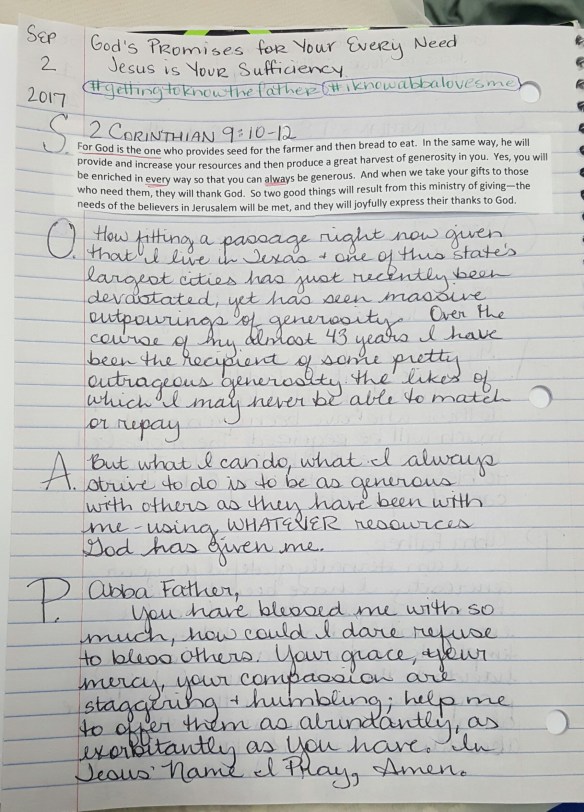 Sep
2
2017
God's Promises for Your Every Need
Jesus is Your Sufficiency
#gettingtoknowthefather #iknowabbalovesme
S. 2 Corinthian 9:10-12
For God is the one who provides seed for the farmer and then bread to eat. In the same way, he will
provide and increase your resources and then produce a great harvest of generosity in you. Yes, you will
be enriched in every way so that you can always be generous. And when we take your gifts to those
who need them, they will thank God. So two good things will result from this ministry of giving—the
needs of the believers in Jerusalem will be met, and they will joyfully express their thanks to God.
O. How fitting a passage right now given
that I live in Texas + one of this state's
largest cities has just recently been
devastated, yet has seen massive
outpourings of generosity. Over the
course of my almost 43 years I have
been the recipient of some pretty
outrageous generosity the likes of
which I may never be able to match
or repay
A. But what I can do, what I always
strive to do is to be as generous
with others as they have been with
me - using WHATEVER resources
God has given me.
P. Abba Father,
You have blessed me with so
much, how could I dare refuse
to bless others. Your grace, your
mercy, your compassion are
staggering + humbling; help me
to offer them as abundantly, as
exorbitantly as you have. In
Jesus' Name I Pray, Amen.